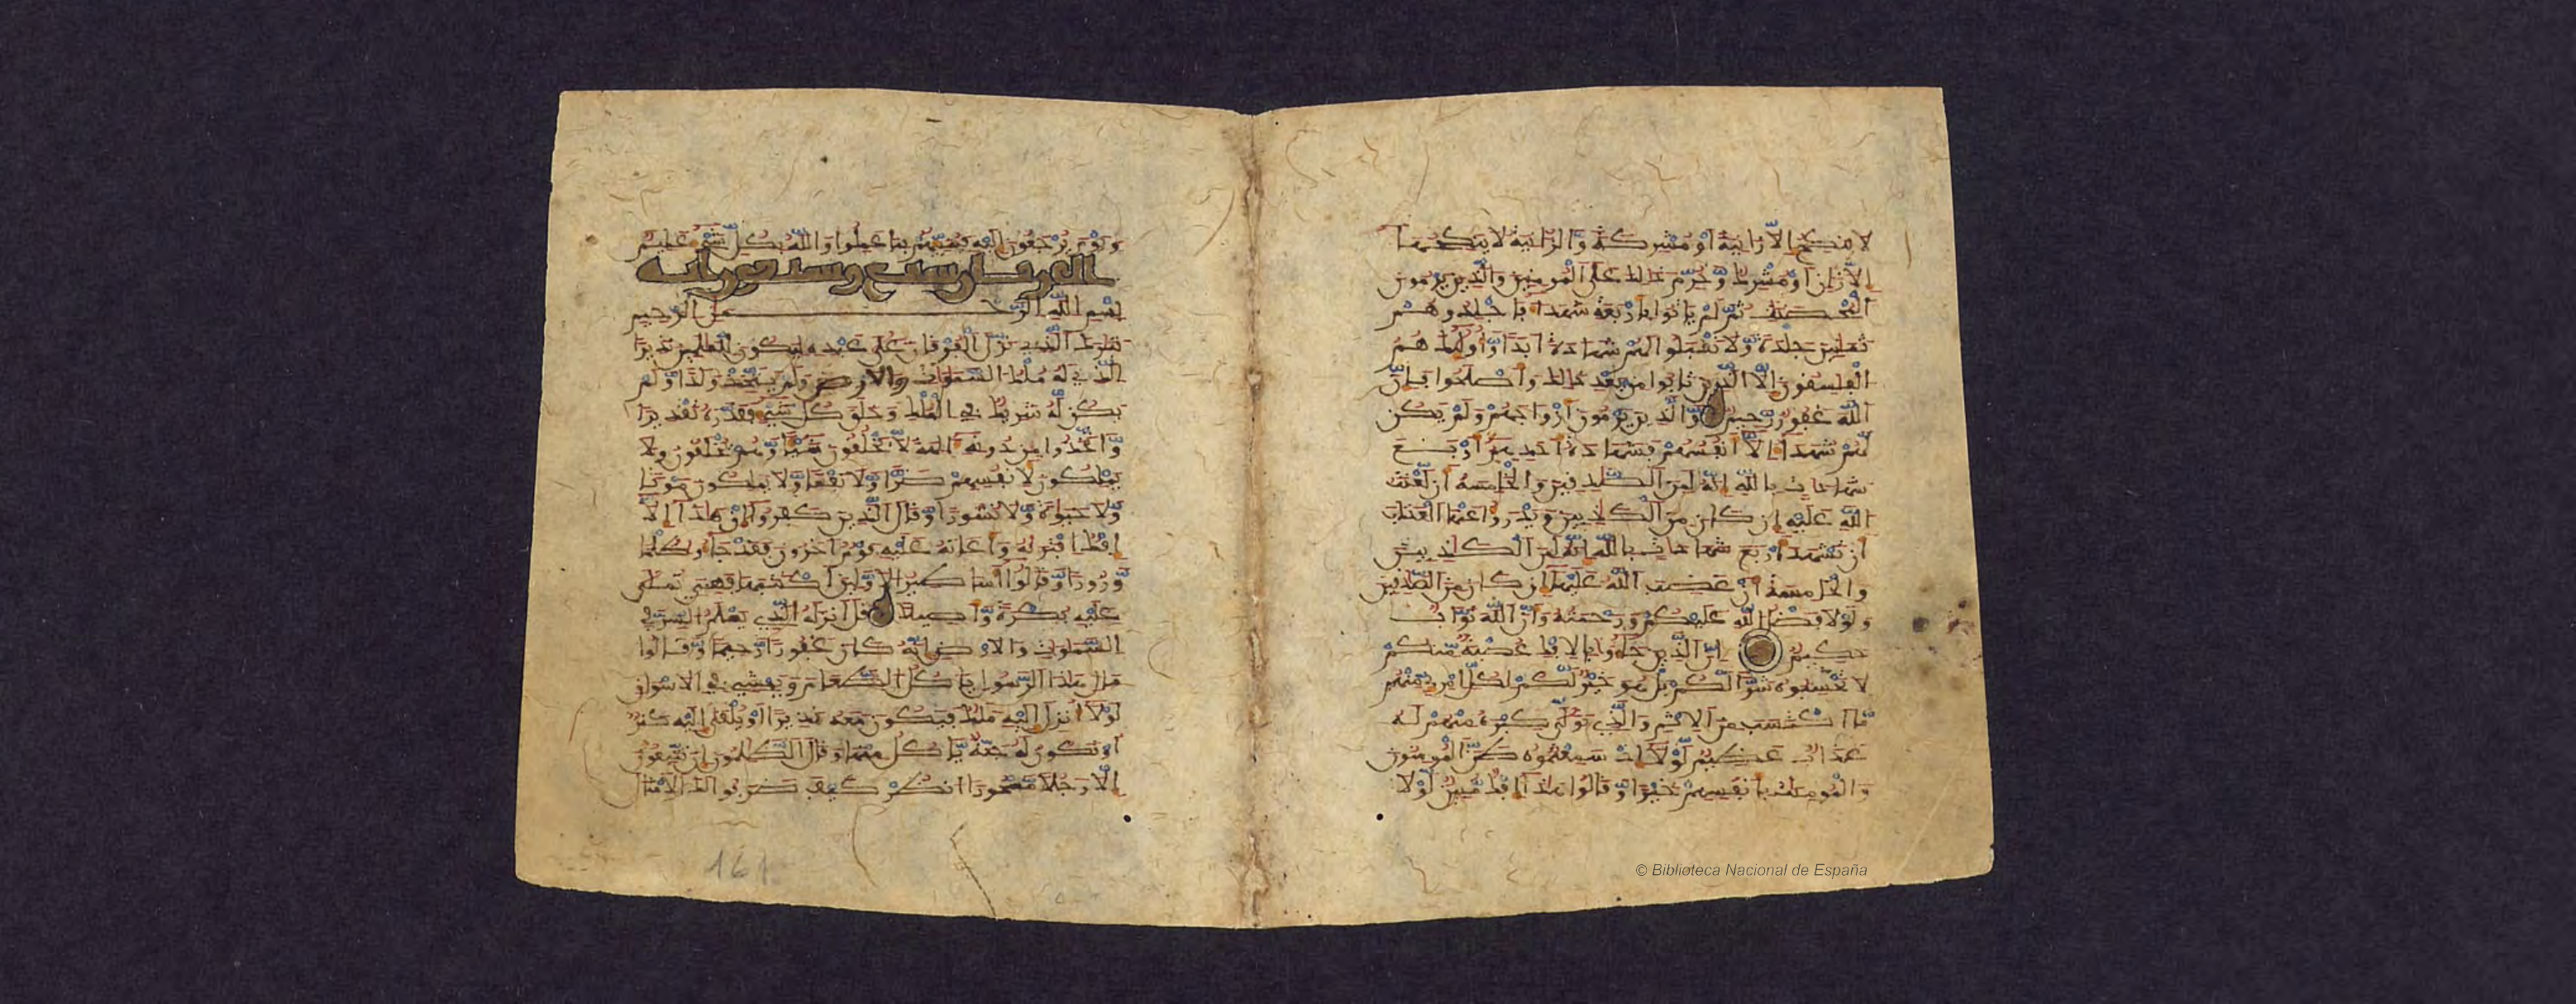 لا ينكح إلّا زانية أو مشركة وّالزّانية لا ينكحهآ
إلّا زان أو مشرك وّحرّم ذالك على المومنين والّذين يرمون
المحصنت ثمّ لم ياتوا بأربعة شهدآء فاجلدوهم
ثمانين جلدة وّلا تقبلوا لهم شهادة أبدا وّأولئك هم
الفسقون إلّا الّذين تابوا من بعد ذالك وأصلحوا فإنّ
الله غفور رّحيم وّالّذين يرمون أزواجهم ولم يكن
لّهم شهدآء الّا أنفسهم فشهادة أحدهم أربع
شهادات بالله إنّه لمن الصّدقين والخامسة أن لّعنت
الله عليه إن كان من الكاذبين ويدرؤا عنها العذاب
أن تشهد أربع شهادات بالله إنّه لمن الكاذبين
والخامسة أن غضب الله عليهآ إن كان من الصّدقين
ولولا فضل الله عليكم ورحمته وأنّ الله توّاب
حكيم إنّ الّذين جآءو بالافك عصبة مّنكم
لا تحسبوه شرّا لّكم بل هو خير لّكم لكلّ امرئ مّنهم
مّا اكتسب من الاثم والّذي تولّى كبره منهم له
عذاب عظيم لّولآ إذ سمعتموه ظنّ المومنون
والمومنات بأنفسهم خيرا وّقالوا هذآ إفك مّبين لّولا
ويوم يرجعون إليه فينبّئهم بما عملوا والله بكلّ شيء عليم
الفرقان سبع وسبعون اية
بسم الله الرّحمن الرّحيم
تبرك الّذي نزّل الفرقان على عبده ليكون للعلمين نذيرا
الّذي له ملك السّموات والارض ولم يتّخذ ولدا وّلم
يكن لّه شريك في الملك وخلق كلّ شيء فقدّره تقديرا
وّاتّخذوا من دونه ءالهة لّا يخلقون شيئا وّهم يخلقون ولا
يملكون لأنفسهم ضرّا وّلا نفعا وّلا يملكون موتا
وّلا حيوة وّلا نشورا وّقال الّذين كفروا إن هذآ إلّا
إفك افتريه وأعانه عليه قوم اخرون فقد جآءو ظلما
وّزورا وّقالوا أسطير الاوّلين اكتتبها فهي تملى
عليه بكرة وّأصيلا قل أنزله الّذي يعلم السّرّ في
السّموات والارض إنّه كان غفورا رّحيما وّقالوا
مال هذا الرّسول ياكل الطّعام ويمشي في الاسواق
لولآ أنزل إليه ملك فيكون معه نذيرا أو يلقى إليه كنز
أو تكون له جنّة يّاكل منها وقال الظّلمون إن تتّبعون
إلّا رجلا مّسحورا انظر كيف ضربوا لك الامثال
161
© Biblioteca Nacional de España